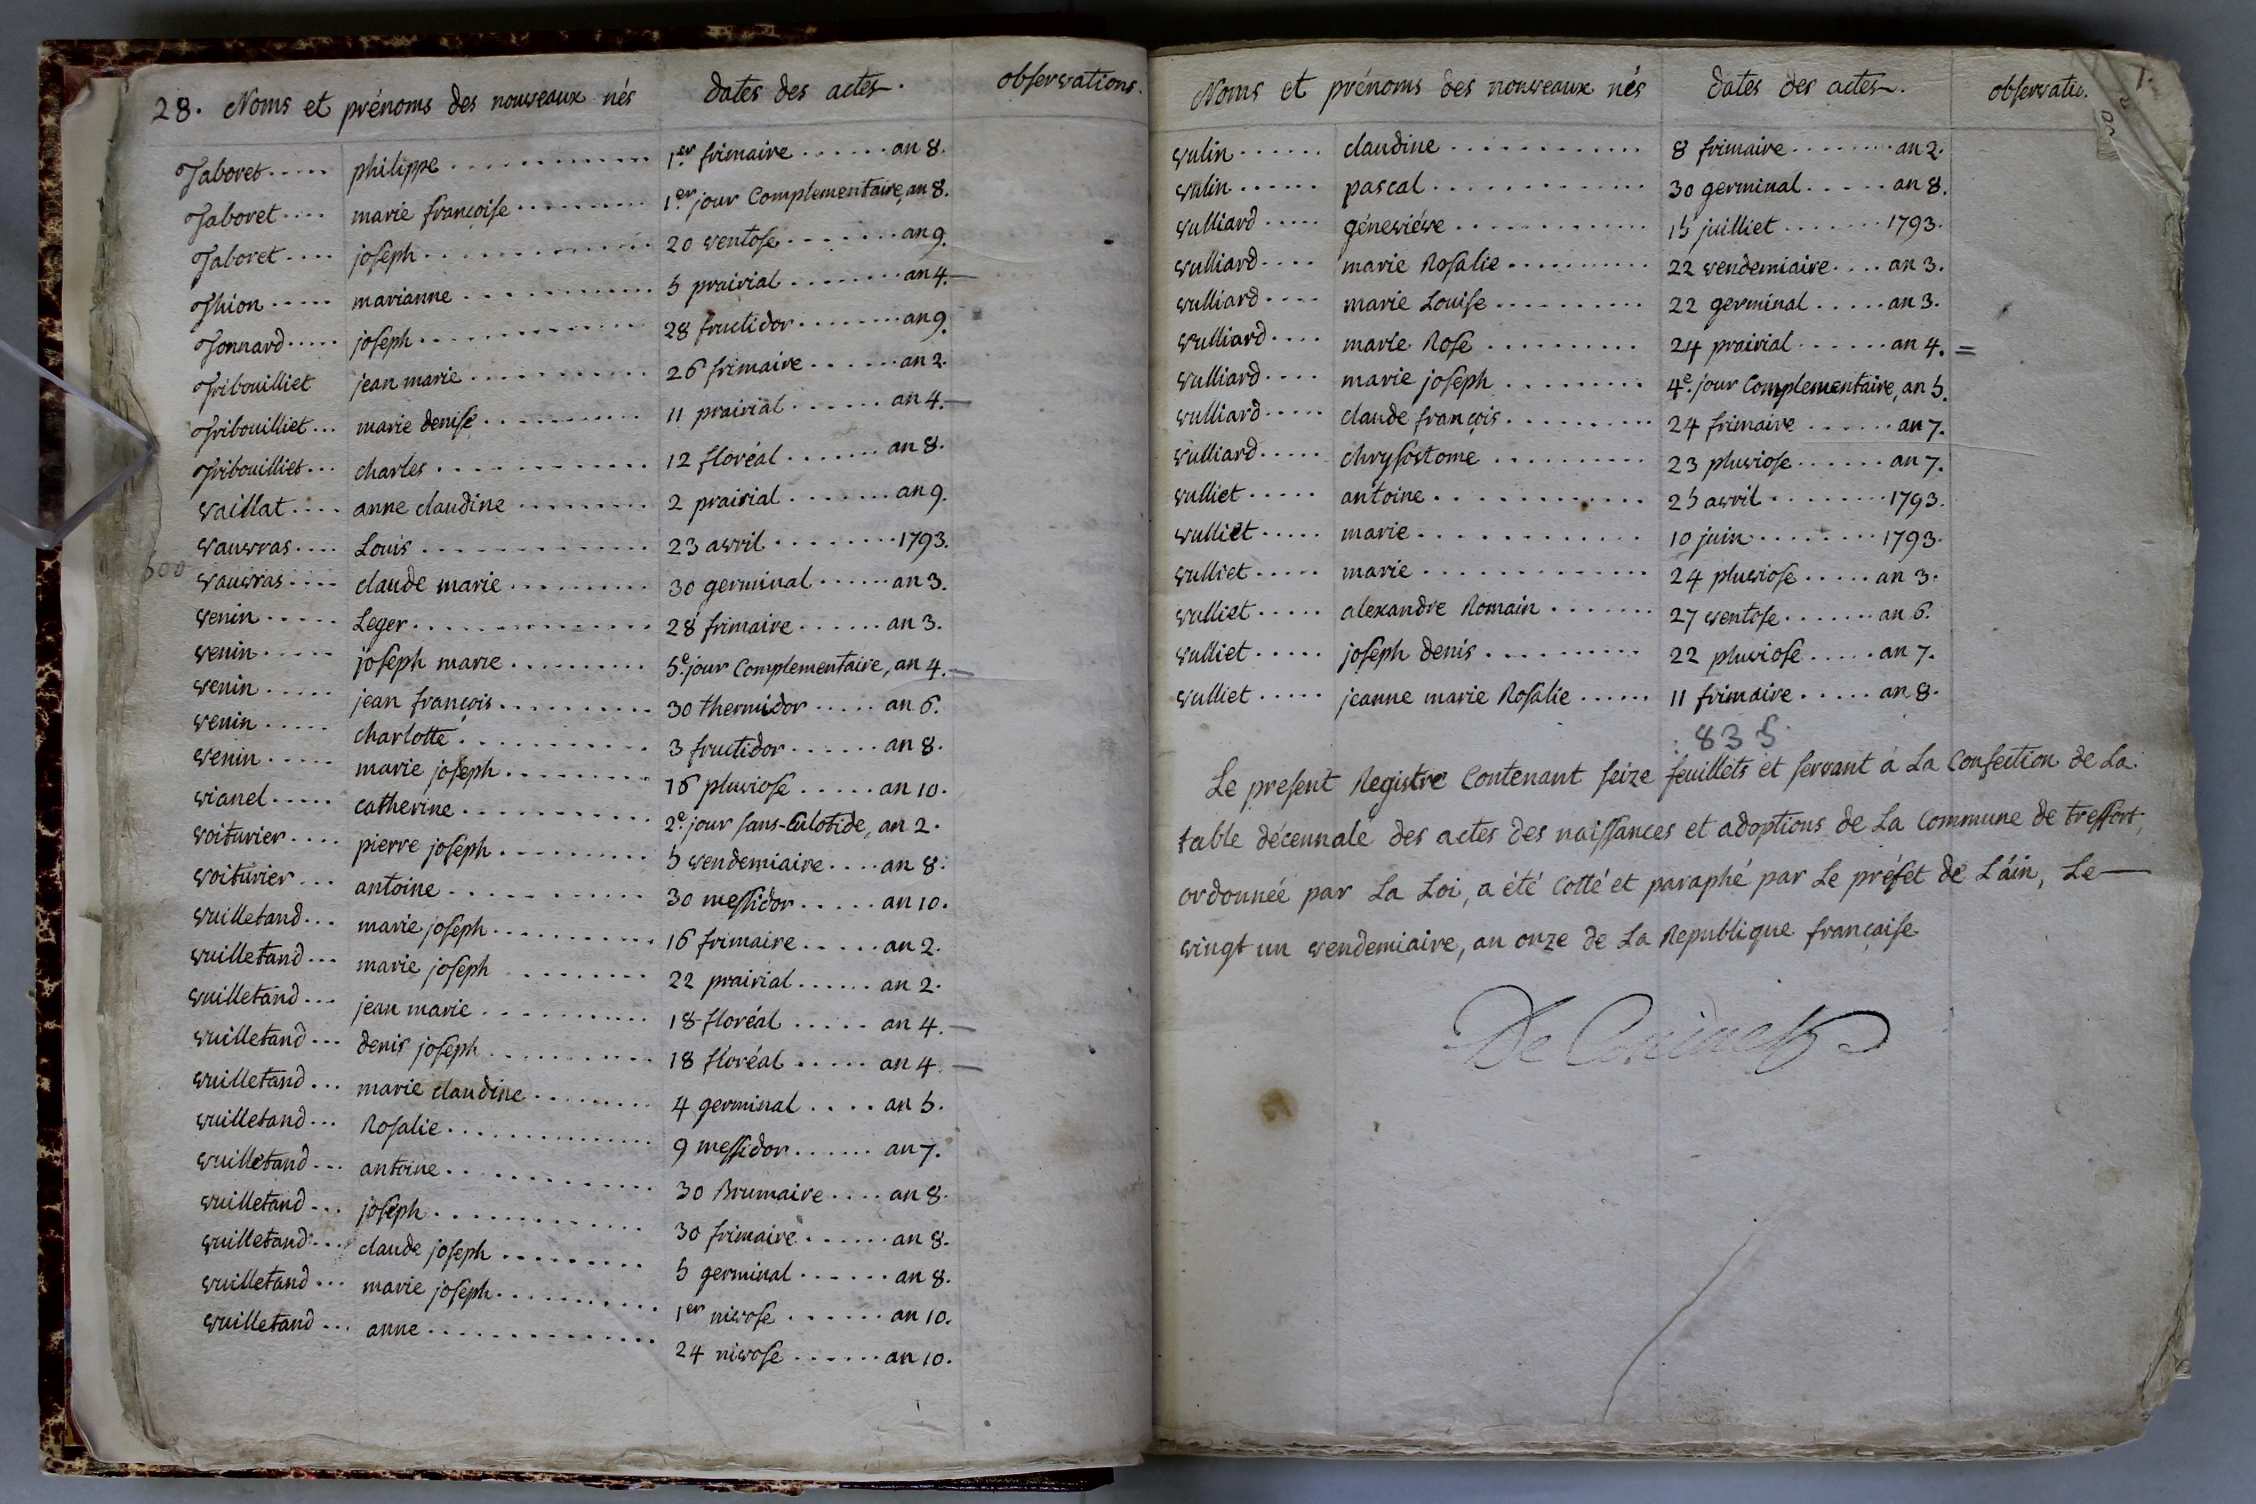 28. Noms et prénoms des nouveaux nés dates des actes. observations.
Taboret philippe 1er frimaire an 8.
Taboret marie françoise 1er jour Complementaire, an 8.
Taboret joseph 20 ventose an 9.
Thion marianne 5 prairial an 4.
Tonnard joseph 28 fructidor an 9.
Tribouilliet jean marie 26 frimaire an 2.
Tribouilliet marie denise 11 prairial an 4.
Tribouilliet charles 12 floréal an 8.
vaillat anne claudine 2 prairial an 9.
vauvras Louis 23 avril 1793.
vauvras claude marie 30 germinal an 3.
venin Leger 28 frimaire an 3.
venin joseph marie 5e. jour Complementaire, an 4.
venin jean françois 30 thermidor an 6.
venin charlotte 3 fructidor an 8.
venin marie joseph 16 pluviose an 10.
vianel catherine 2e. jour sans-Culotide, an 2.
voiturier pierre joseph 5 vendemiaire an 8.
voiturier antoine 30 messidor an 10.
vuilletand marie joseph 16 frimaire an 2.
vuilletand marie joseph 22 prairial an 2.
vuilletand jean marie 18 floréal an 4.
vuilletand denis joseph 18 floréal an 4.
vuilletand marie claudine 4 germinal an 5.
vuilletand Rosalie 9 messidor an 7.
vuilletand antoine 30 Brumaire an 8.
vuilletand joseph 30 frimaire an 8.
vuilletand claude joseph 5 germinal an 8.
vuilletand marie joseph 1er nivose an 10.
vuilletand anne 24 nivose an 10.
Noms et prénoms des nouveaux nés dates des actes.
vulin claudine 8 frimaire an 2.
vulin pascal 30 germinal an 8.
vulliard géneviéve 15 juilliet 1793.
vulliard marie Rosalie 22 vendemiaire an 3.
vulliard marie Louise 22 germinal an 3.
vulliard marie Rose 24 prairial an 4. =
vulliard marie joseph 4e. jour Complementaire, an 5.
vulliard claude françois 24 frimaire an 7.
vulliard chrysostome 23 pluviose an 7.
vulliet antoine 25 avril 1793.
vulliet marie 10 juin 1793.
vulliet marie 24 pluviose an 3.
vulliet alexandre Romain 27 ventose an 6.
vulliet joseph denis 22 pluviose an 7.
vulliet jeanne marie Rosalie 11 frimaire an 8.
835
Le present Registre Contenant seize feuillets et servant à La Confection de La
table décennale des actes des naissances et adoptions de La Commune de treffort,
ordonnée par La Loi, a été Cotté et paraphé par Le préfet de L'ain, Le
vingt un vendemiaire, an onze de La Republique française